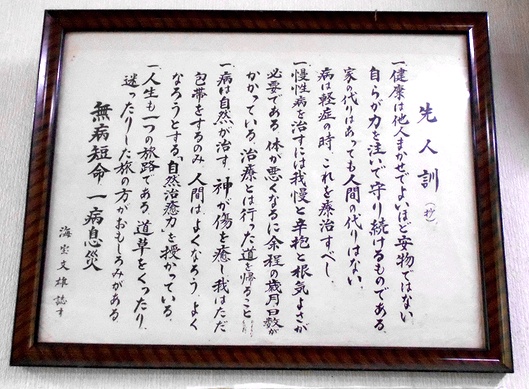 先人訓(抄)
一、健康は他人まかせでよいほど安物ではない
自らが力を注いで守り続けるものである。
家の代りはあっても人間の代りはない。
病は軽症の時、これを療治すべし。
一、慢性病を治すには我慢と辛抱と根気よさが
必要である。体が悪くなるに余程の歳月日数が
かかっている。治療とは行った道を帰ること
一、病は自然が治す、神が傷を癒し我はただ
包帯をするのみ、人間はよくなろう、よく
なろうとする「自然治癒力」を授かっている。
一、人生も一つの旅路である。道草をくったり、
迷ったりした旅の方がおもしろみがある。
無病短命 一病息災
海宝文雄誌す